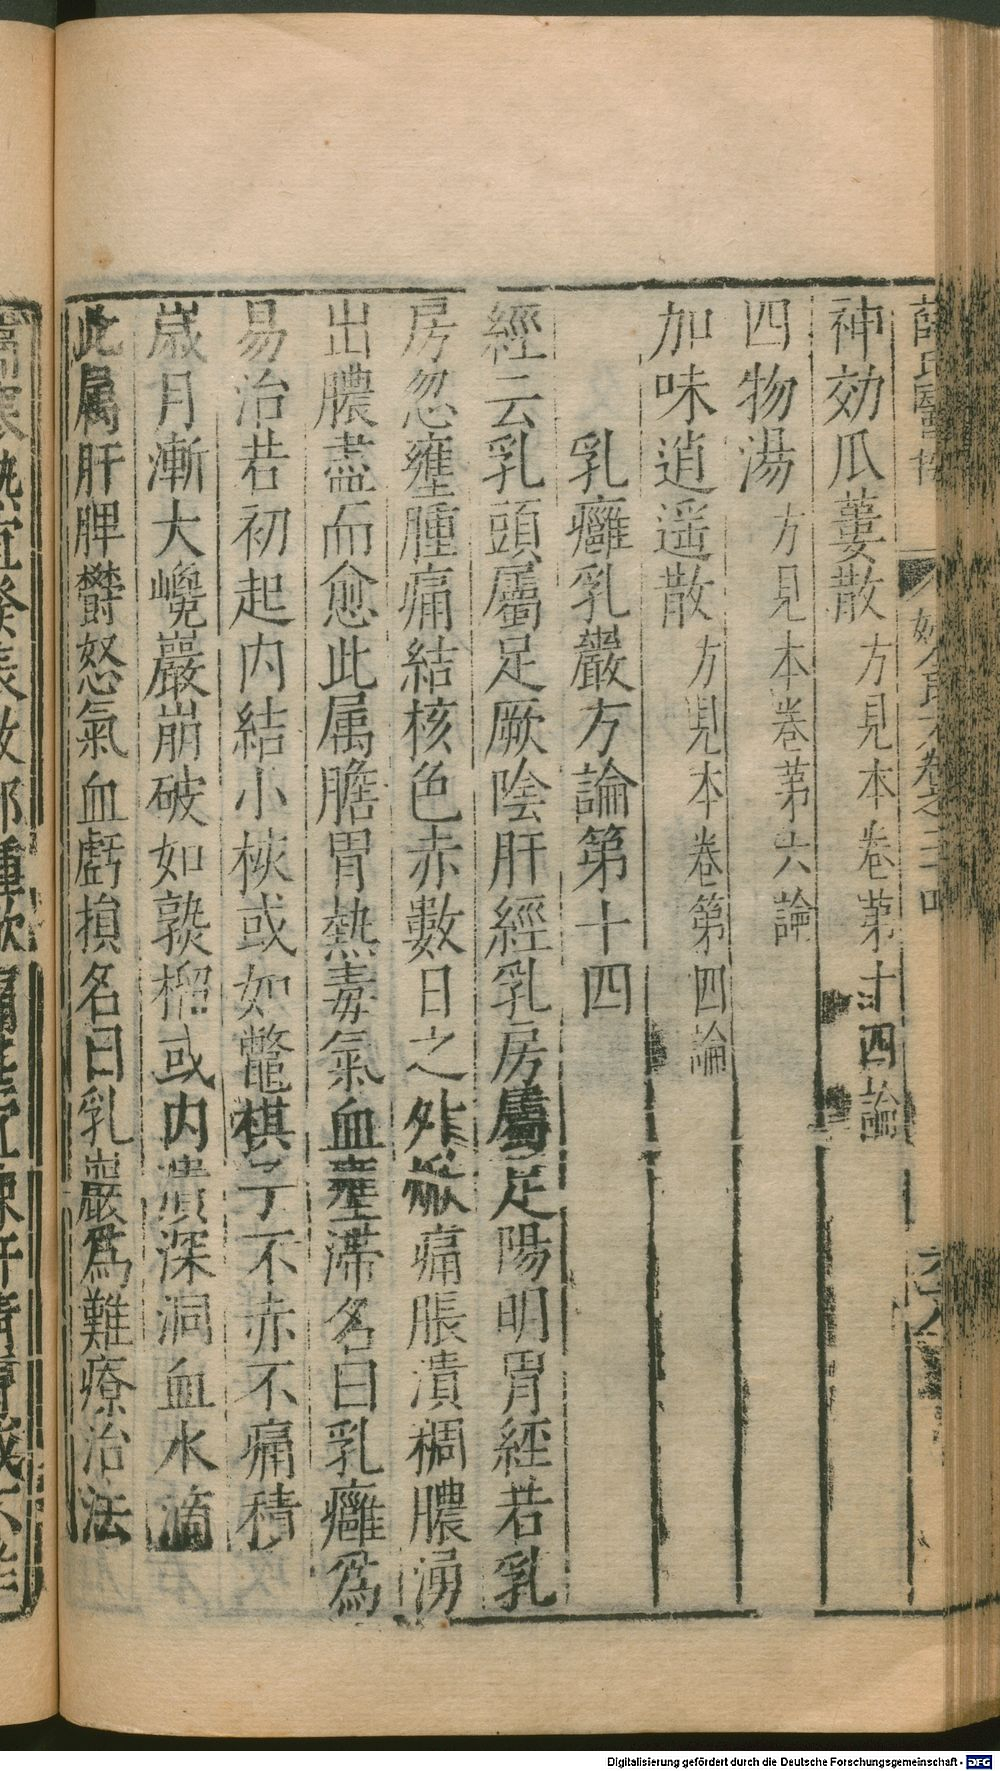 神効瓜蔞散方見本卷苐十四論
四物湯方見本卷苐六論
加味逍遥散方見本卷第四論
乳癰乳巖方論第十四
經云乳頭屬足厥陰肝經乳房屬足陽明胃經若乳
房忽壅腫痛結核色赤數日之外㷸痛脹潰稠膿湧
出膿盡而愈此属膽胃熱毒氣血壅滯名曰乳癰爲
易治若初起内結小核或如鱉棋子不赤不痛積
歲月漸大巉巖崩破如熟榴或内潰深洞血水滴
此属肝脾欝怒氣血虧損名曰乳巖爲難療治法
Digitalisierung gefördert durch die Deutsche Forschungsgemeinschaft - DFG